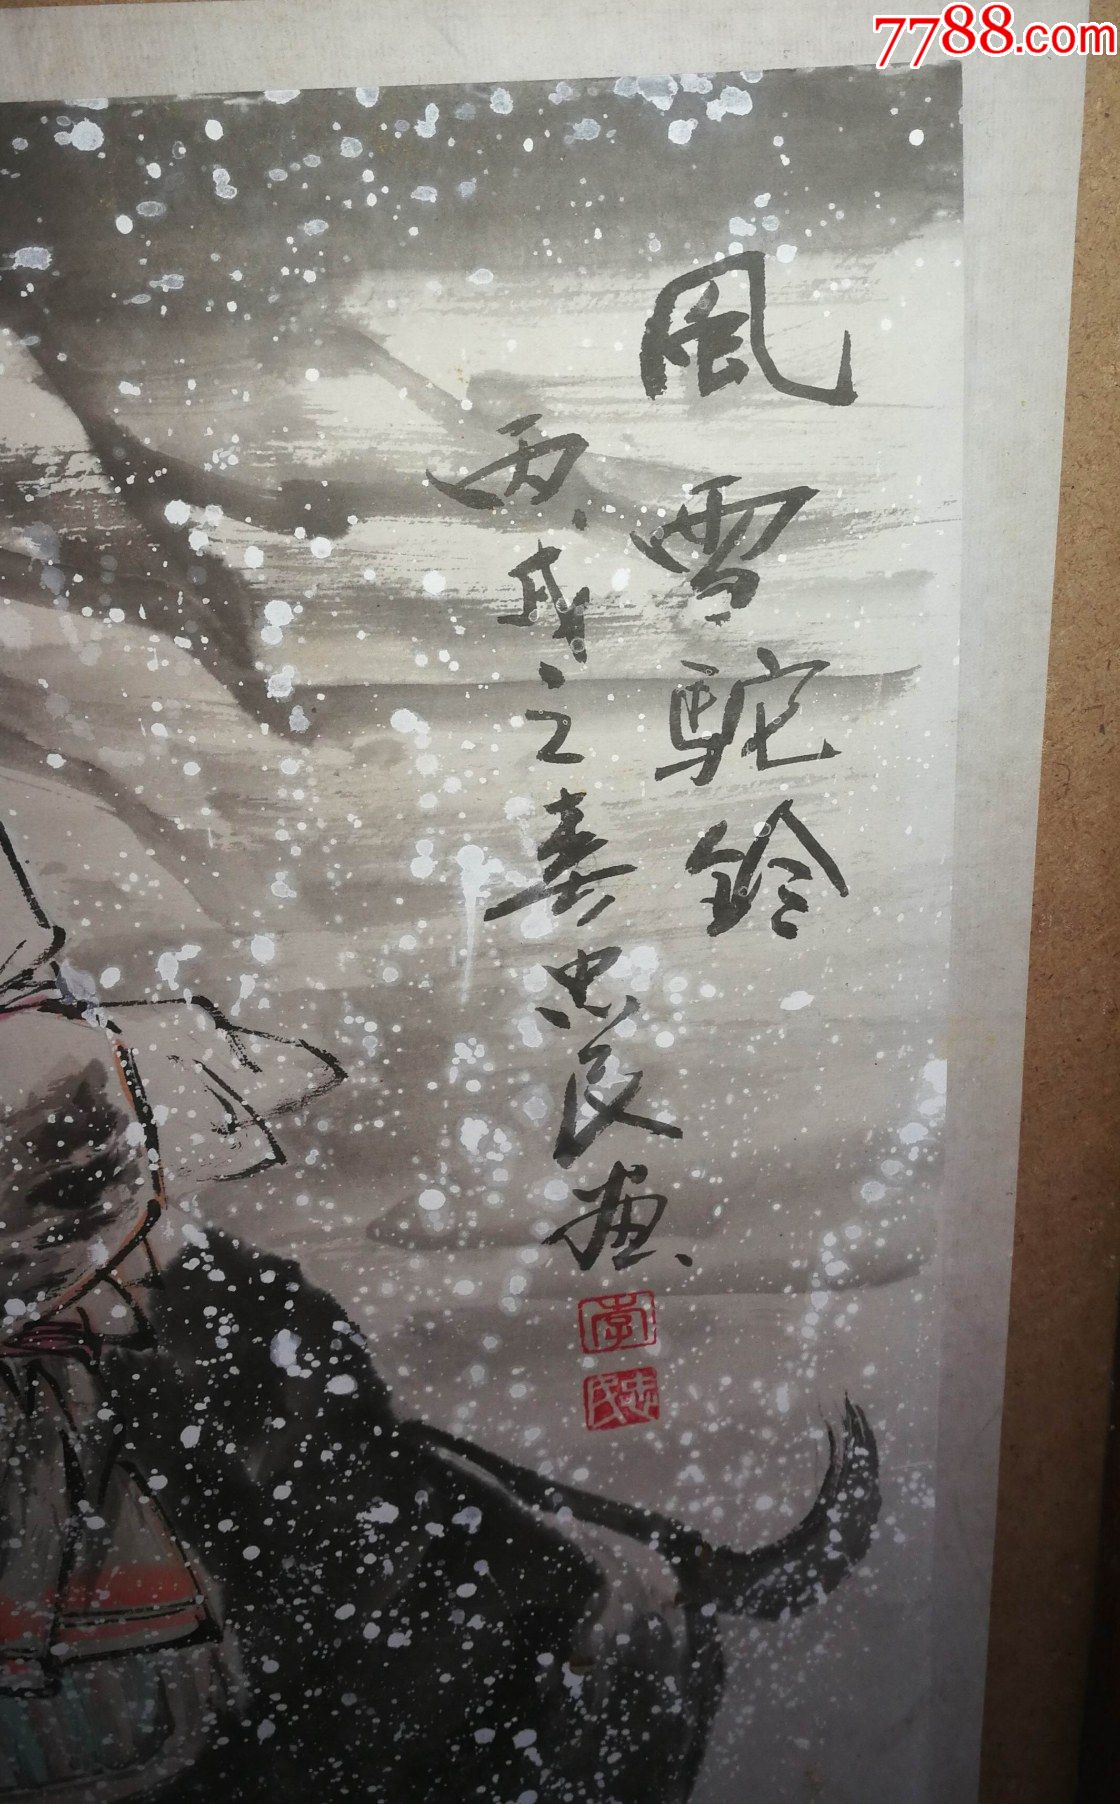 7788.com
風雪駝鈴
丙戌之春忠良画